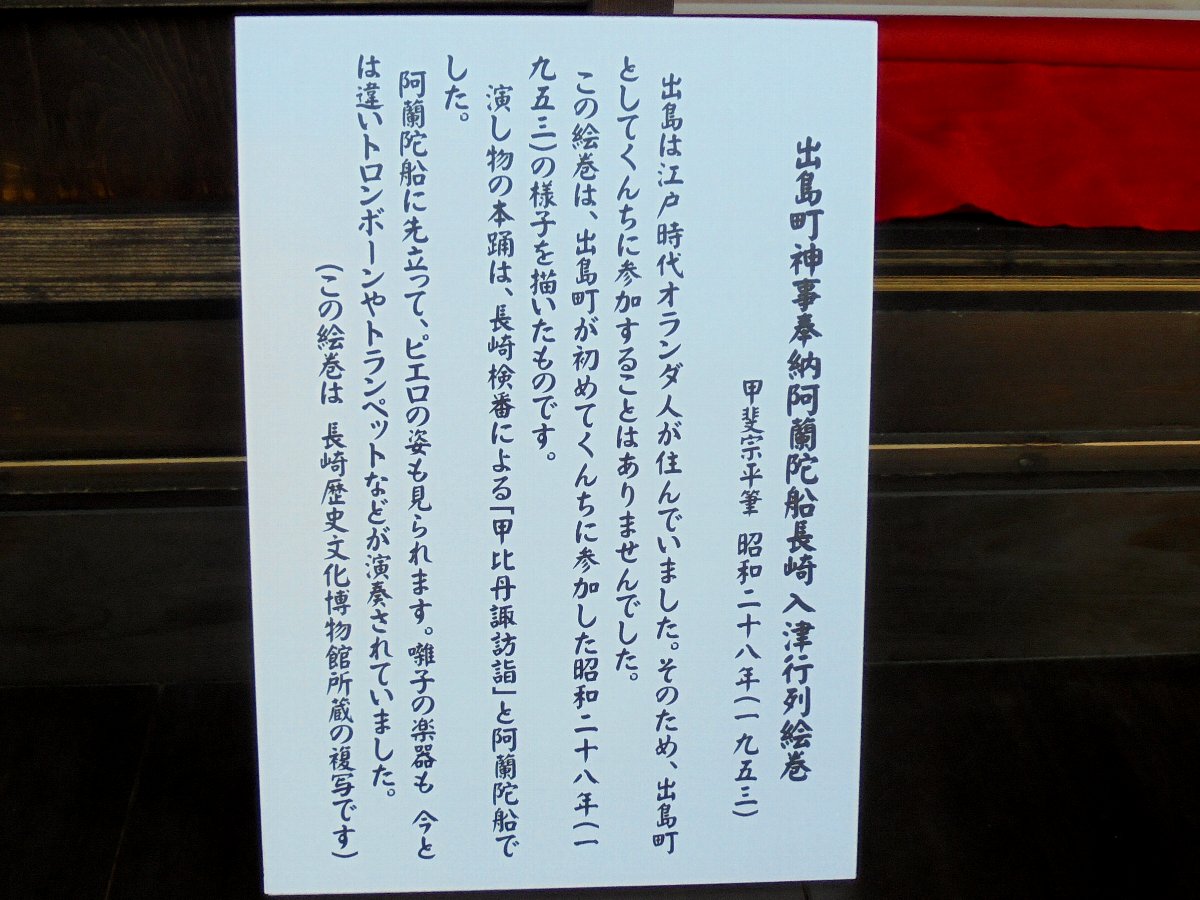 出島町神事奉納阿蘭陀船長崎入津行列絵巻
甲斐宗平筆 昭和二十八年(一九五三)
出島は江戸時代オランダ人が住んでいました。そのため、出島町
としてくんちに参加することはありませんでした。
この絵巻は、出島町が初めてくんちに参加した昭和二十八年(一
九五三)の様子を描いたものです。
演し物の本踊は、長崎検番による「甲比丹諏訪詣」と阿蘭陀船で
した。
阿蘭陀船に先立って、ピエロの姿も見られます。囃子の楽器も 今と
は違いトロンボーンやトランペットなどが演奏されていました。
(この絵巻は 長崎歴史文化博物館所蔵の複写です)